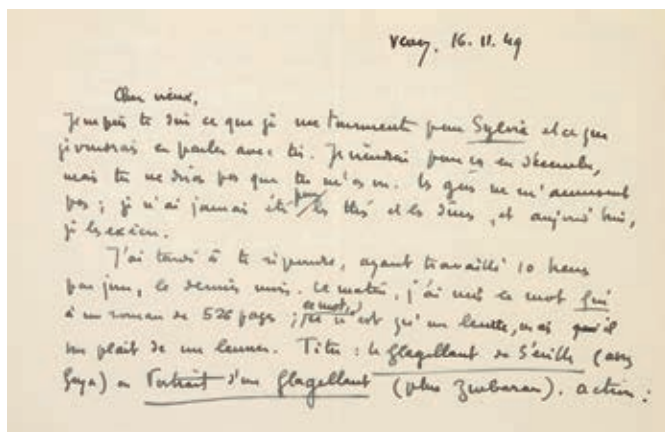 Vevey, 16.11.49
Cher vieux,
te dire ce que je me tourmente pour Sylvie et ce que
je voudrais en parler avec toi. Je viendrai pour ça en décembre,
mais tu ne diras pas que tu m'as vu. Les gens ne m'amusent
pas ; je n'ai jamais été pour les thés et les dîners, et aujourd'hui,
je les
J'ai tardé à te répondre, ayant travaillé 10 heures
par jour, le dernier mois. Ce matin, j'ai mis le mot fin
à un roman de 526 pages ; ce mot, ce n'est qu'un leurre, mais qu'il
me plaît de me leurrer. Titre : le flagellant de Séville (assez
Goya) ou Portrait d'un flagellant (plus Zurbaran). action :